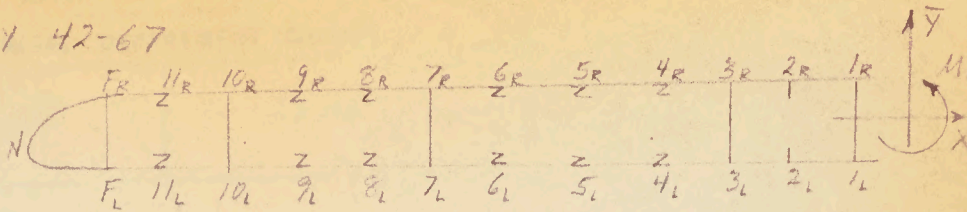 Y 42-67
Ȳ
F_R 11_R 10_R 9_R 8_R 7_R 6_R 5_R 4_R 3_R 2_R 1_R M
Z Z Z Z Z Z
N X
Z Z Z Z Z Z
F_L 11_L 10_L 9_L 8_L 7_L 6_L 5_L 4_L 3_L 2_L 1_L